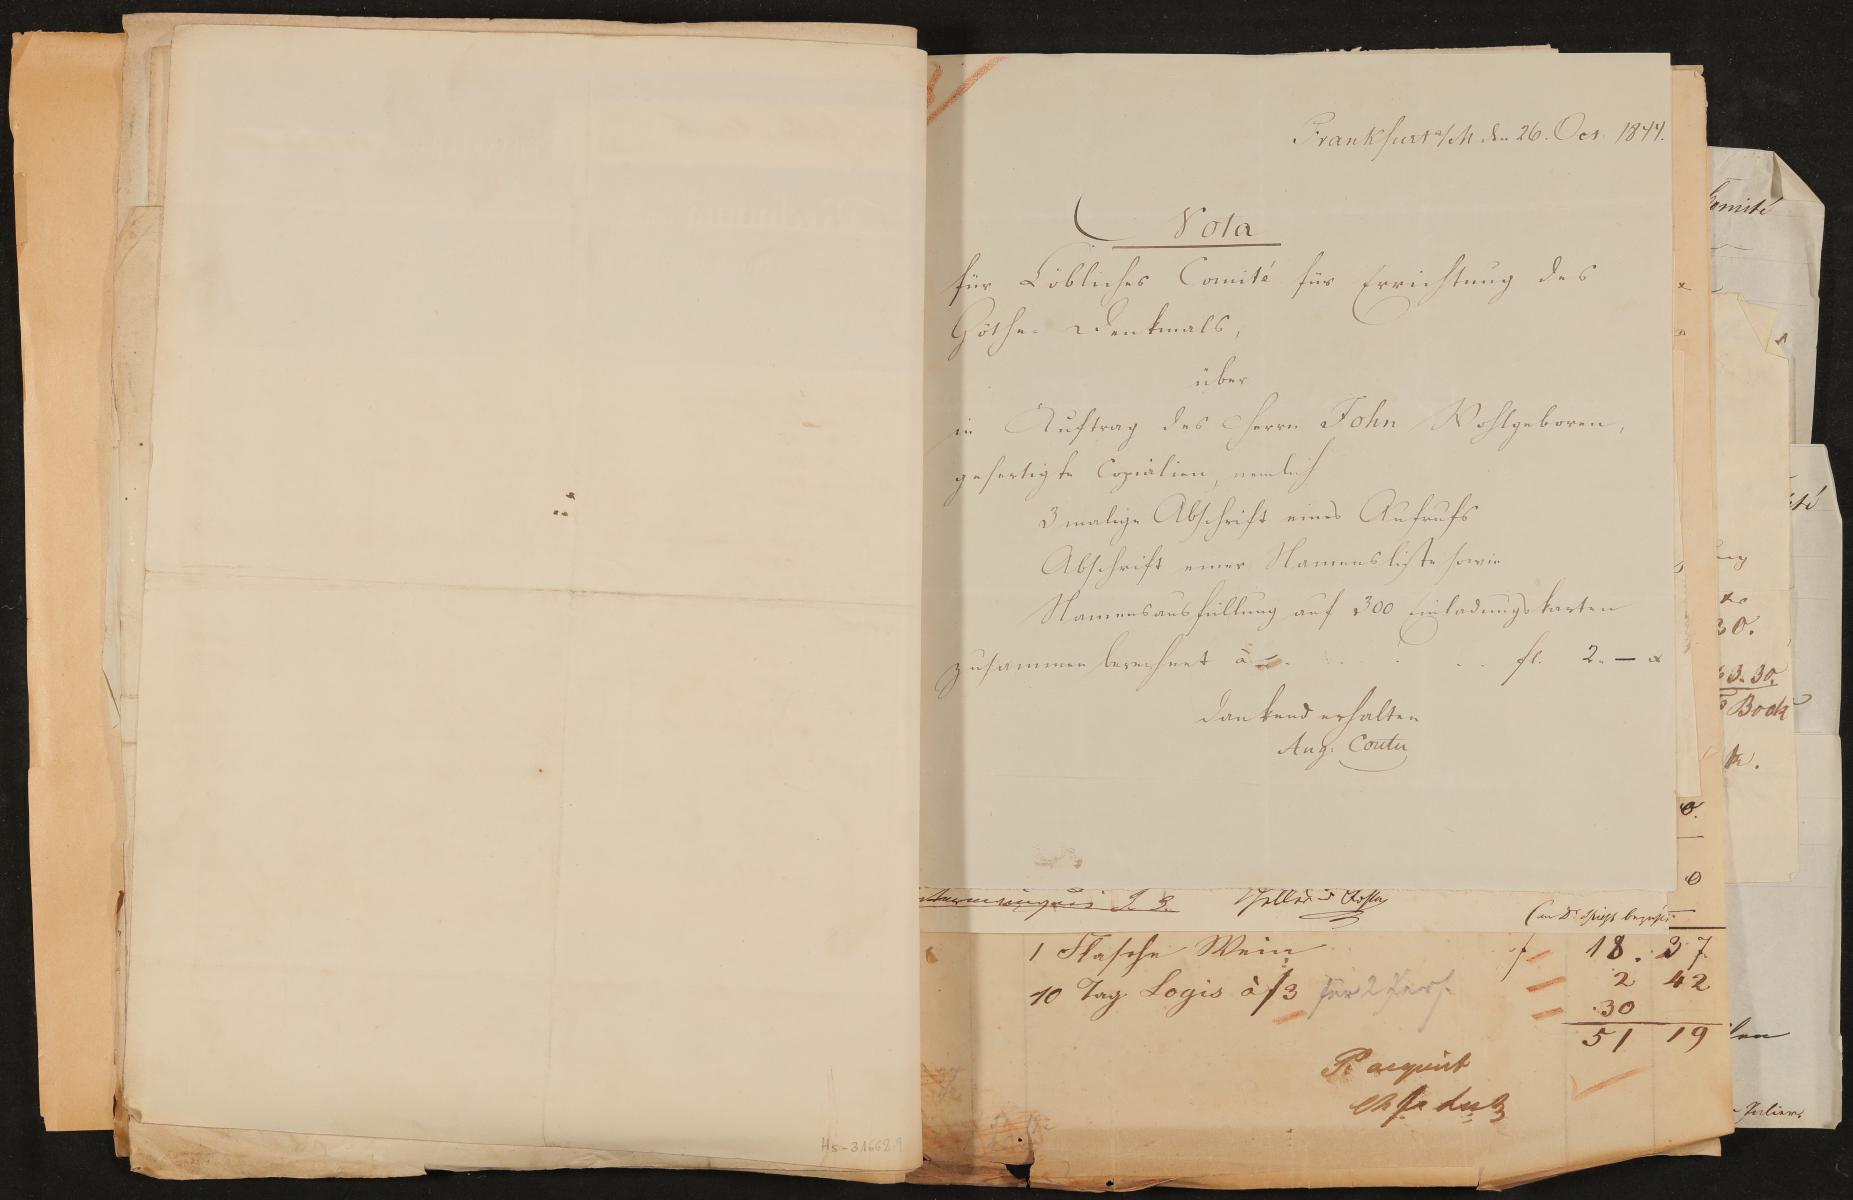 Frankfurt a/M den 26. Oct. 1844.
Nota
für Löbliches Comité für Errichtung des
Göthe-Denkmals,
über
im Auftrag des Herrn John Wohlgeboren,
gefertigte Copialien, nemlich
3malige Abschrift eines Aufrufs
Abschrift einer Namensliste sowie
Namensausfüllung auf 300 Einladungskarten
zusammen berechnet à fl. 2. — x
dankend erhalten
Aug.
1 Flasche Wein f 18. 37
2 42
10 Tag Logis à f 3 für 2 Pers.
30
51 19
P. acquit
Hs-31668,9
Comité
30.
3.30.
Book